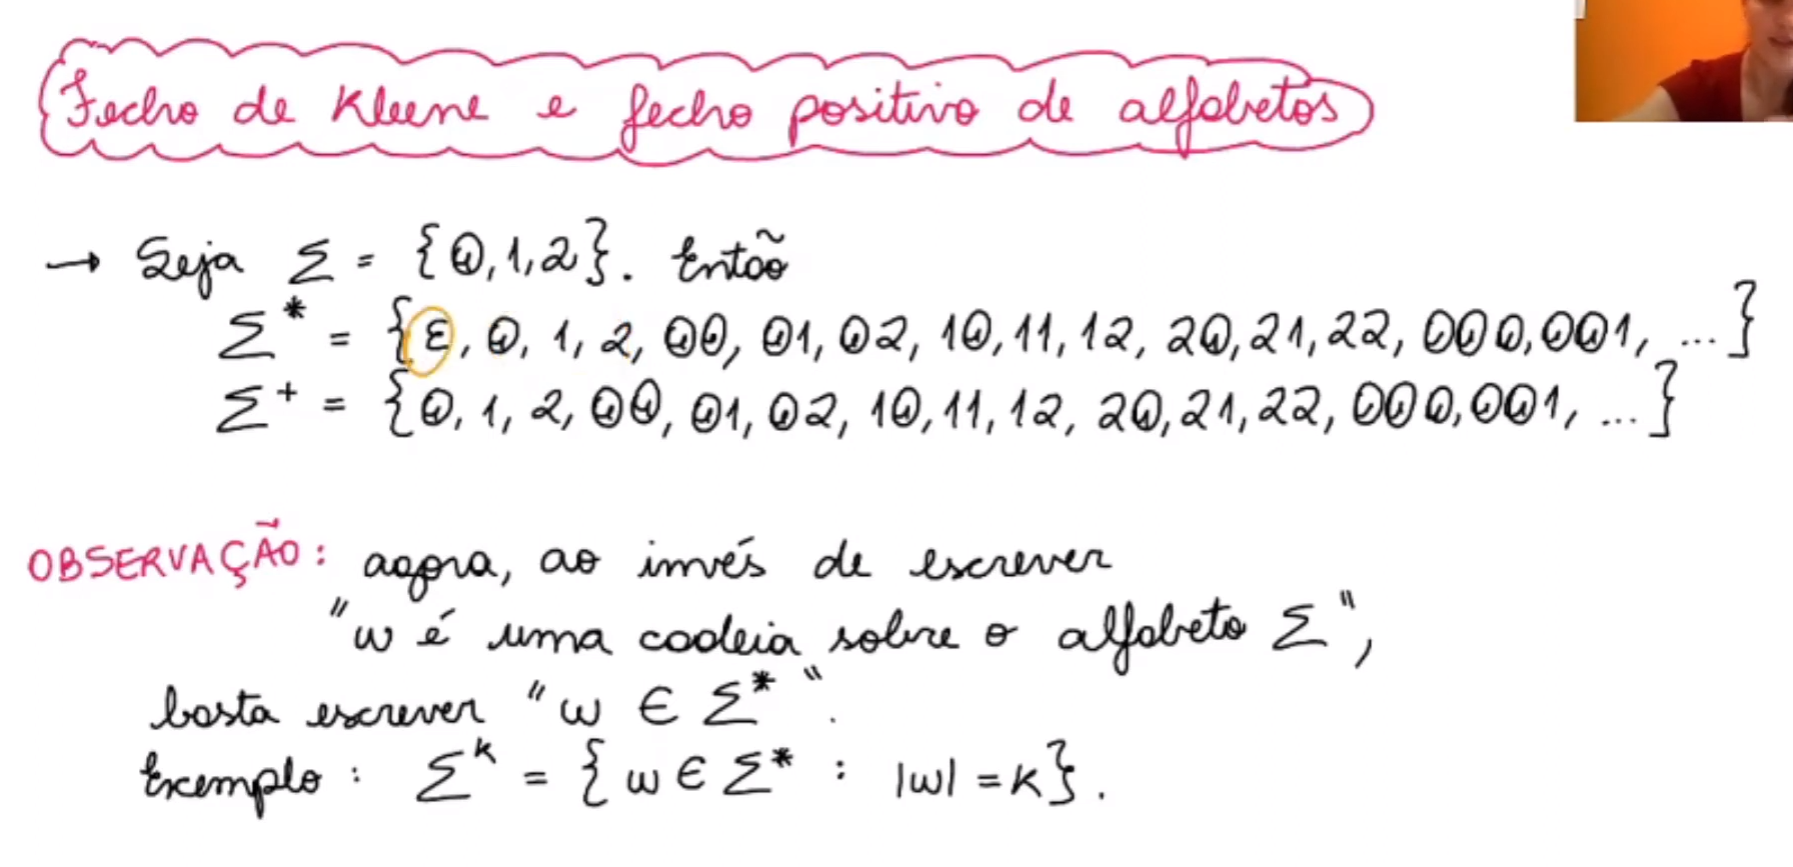 Fecho de Kleene e fecho positivo de alfabetos
→ Seja Σ = {0,1,2}. Então
Σ* = {ε, 0, 1, 2, 00, 01, 02, 10, 11, 12, 20, 21, 22, 000, 001, ...}
Σ+ = {0, 1, 2, 00, 01, 02, 10, 11, 12, 20, 21, 22, 000, 001, ...}
OBSERVAÇÃO: agora, ao invés de escrever
"w é uma cadeia sobre o alfabeto Σ",
basta escrever "w ∈ Σ*".
Exemplo: Σᵏ = {w ∈ Σ* : |w| = k}.